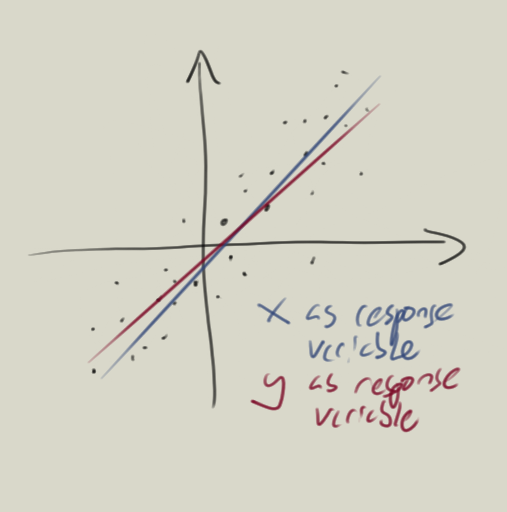 x as response
variable
y as response
variable